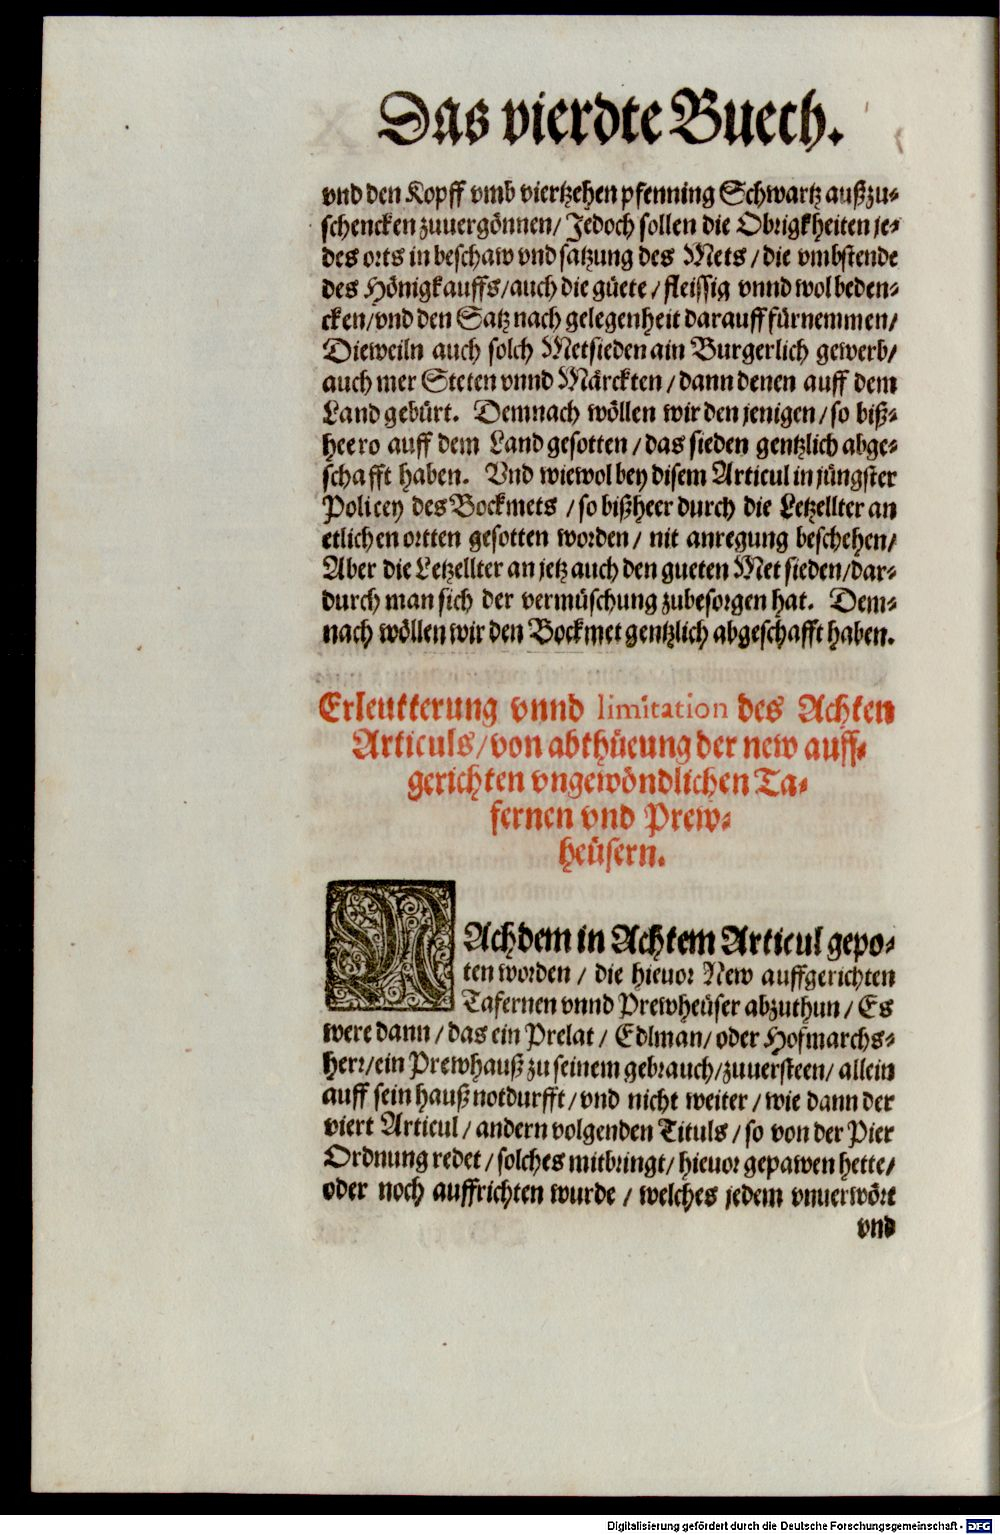 Das vierdte Buech.
vnd den Kopff vmb viertzehen pfenning Schwartz außzu-
schencken zuuergönnen/ Jedoch sollen die Obrigkheiten je-
des orts in beschaw vnd satzung des Mets / die vmbstende
des Hönigkauffs/auch die güete / fleissig vnnd wol beden-
cken/vnd den Satz nach gelegenheit darauff fürnemmen/
Dieweiln auch solch Metsieden ain Burgerlich gewerb/
auch mer Steten vnnd Märckten / dann denen auff dem
Land gebürt. Demnach wöllen wir den jenigen / so biß-
heero auff dem Land gesotten / das sieden gentzlich abge-
schafft haben. Vnd wiewol bey disem Articul in jüngster
Policey des Bockmets / so bißheer durch die Letzellter an
etlichen ortten gesotten worden / nit anregung beschehen/
Aber die Letzellter an jetz auch den gueten Met sieden/dar-
durch man sich der vermüschung zubesorgen hat. Dem-
nach wöllen wir den Bockmet gentzlich abgeschafft haben.
Erleutterung vnnd limitation des Achten
Articuls/von abthüeung der new auff-
gerichten vngewöndlichen Ta-
fernen vnd Prew-
heüsern.
NAchdem in Achtem Articul gepo-
ten worden / die hieuor New auffgerichten
Tafernen vnnd Prewheüser abzuthun / Es
were dann / das ein Prelat / Edlman/ oder Hofmarchs-
herr/ein Prewhauß zu seinem gebrauch/zuuersteen/ allein
auff sein hauß notdurfft / vnd nicht weiter / wie dann der
viert Articul / andern volgenden Tituls / so von der Pier
Ordnung redet / solches mitbringt/ hieuor gepawen hette/
oder noch auffrichten wurde / welches jedem vnuerwört
vnd
Digitalisierung gefördert durch die Deutsche Forschungsgemeinschaft - DFG